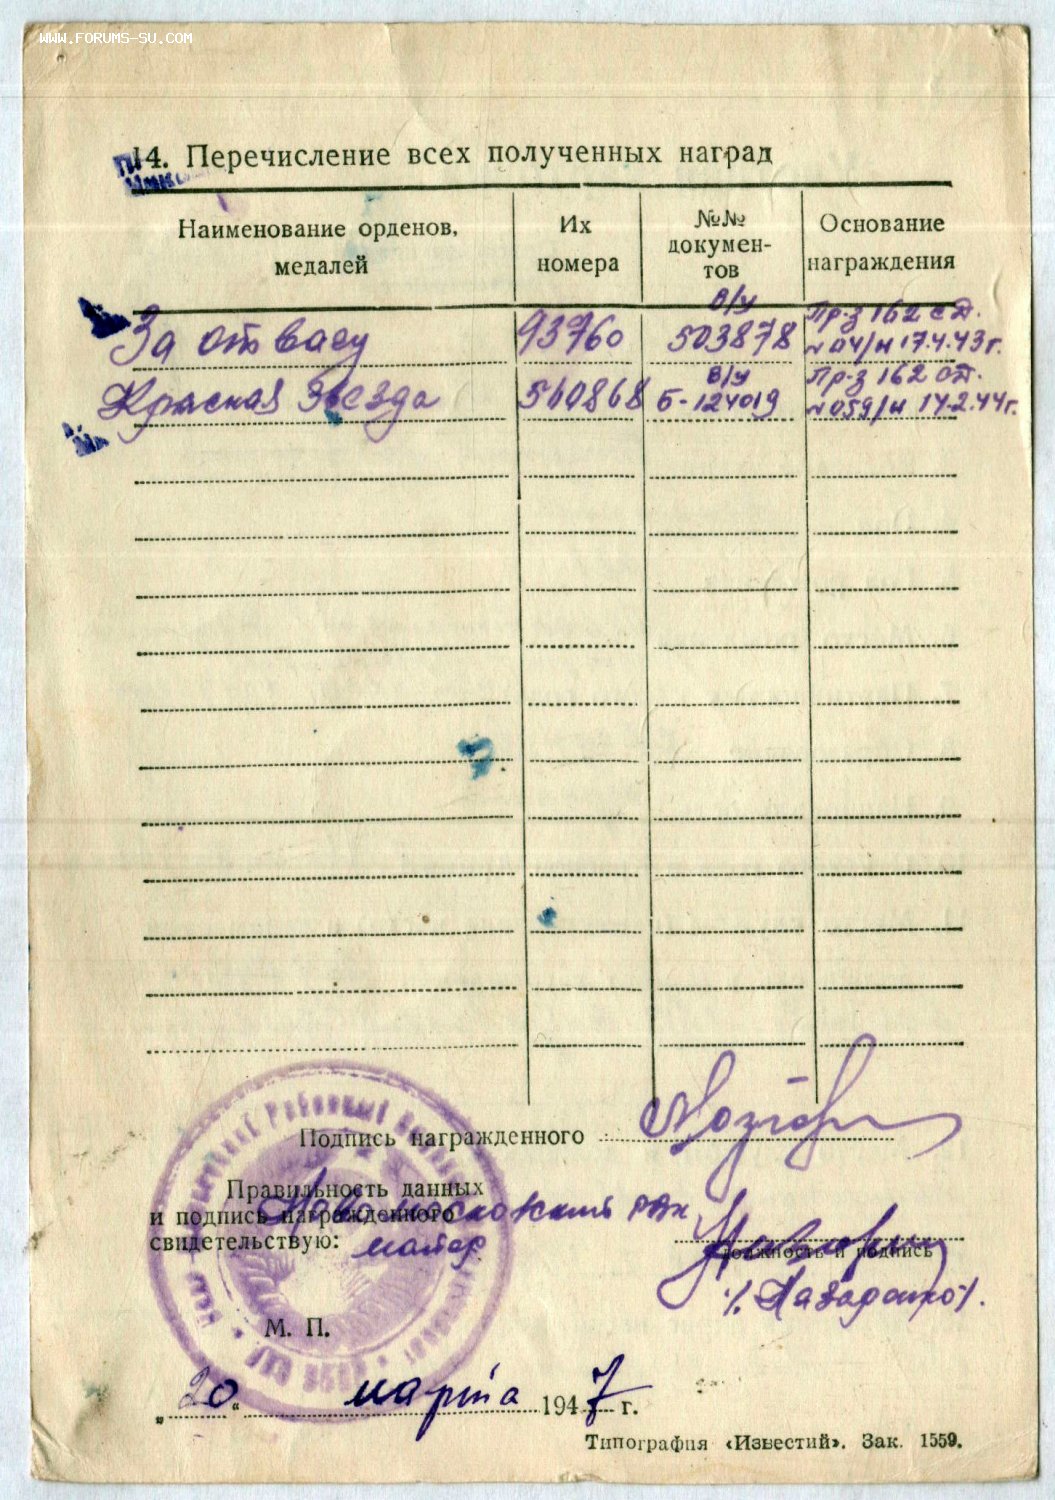 WWW.FORUMS-SU.COM
14. Перечисление всех полученных наград
Наименование орденов, медалей
Их номера
№№ докумен-тов
Основание награждения
За отвагу 93760 в/у 503878 Пр-з 162 сд. №04/н 17.4.43г.
Красная Звезда 510868 в/у Б-124019 Пр-з 162 сд. №059/н 14.2.44г.
Подпись награжденного
Правильность данных
и подпись награжденного
свидетельствую:
Новомосковский РВК
майор
должность и подпись
/Назаренко/.
М. П.
„20“ марта 1947 г.
Типография «Известий». Зак. 1559.